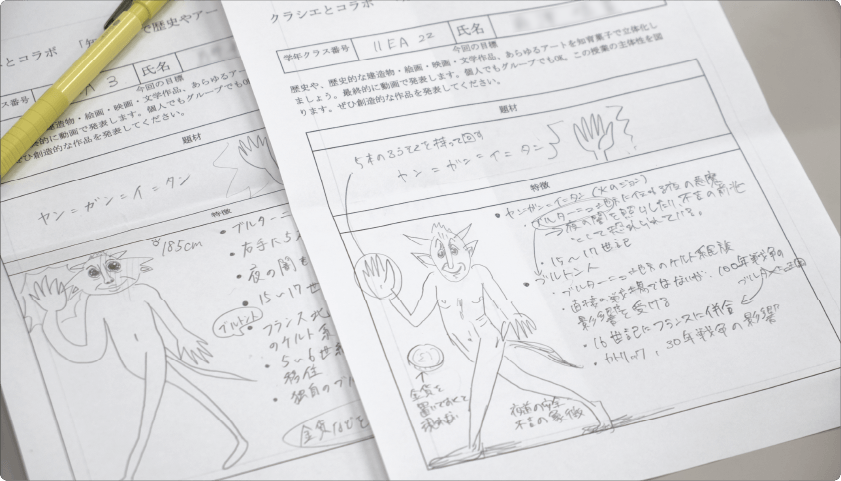 とコラボ 「知
で歴史やアー
ス番号
A 3
氏名
今回の目標
建造物・絵画・映画・文学作品、あらゆるアー
に動画で発表します。個人でもグループでもOK
ひ創造的な作品を発表してください。
題材
ヤン＝ガン＝イ＝タン
特徴
185cm
・ブルターニ
・右手に5
・夜の闇
・15〜17世
ブルトン人
・フランス北
のケルト系
・5〜6世紀
移住
・独自のブル
金貨などを
クラシエとコラボ
学年クラス番号
11EA 22
氏名
今回の目標
歴史や、歴史的な建造物・絵画・映画・文学作品、あらゆるアートを知育菓子で立体化し
ましょう。最終的に動画で発表します。個人でもグループでもOK、この授業の主体性を図
ります。ぜひ創造的な作品を発表してください。
題材
5本のろうそくを持って回す
ヤン＝ガン＝イ＝タン
特徴
・ヤン＝ガン＝イ＝タン
・ブルターニュ地域に伝わる夜の悪魔
夜の闇を照らしたり、不吉の前兆
として恐れられている。
・15〜17世紀
・ブルトン人
・ブルターニュ地域のケルト系民族
・直接の戦場ではないが、100年戦争の
影響を受ける
・16世紀にフランスに併合
・カトリック、30年戦争の影響
金貨を
置いておくと
夜道の安全
不吉の象徴